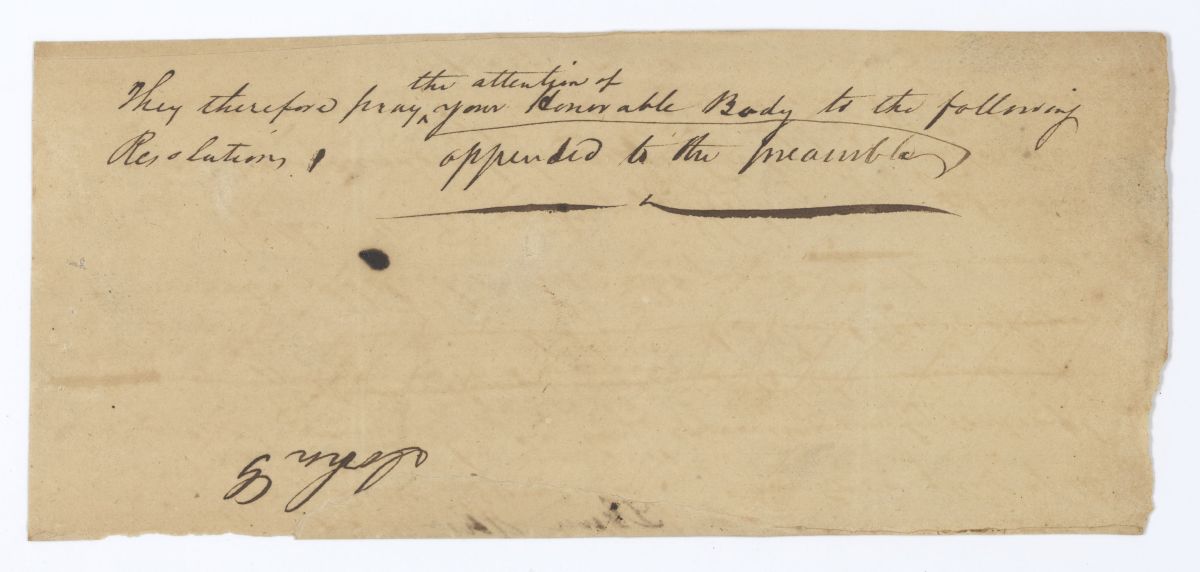 the attention of
They therefore pray ^ your Honorable Body to the following
Resolutions appended to the preamble
John G